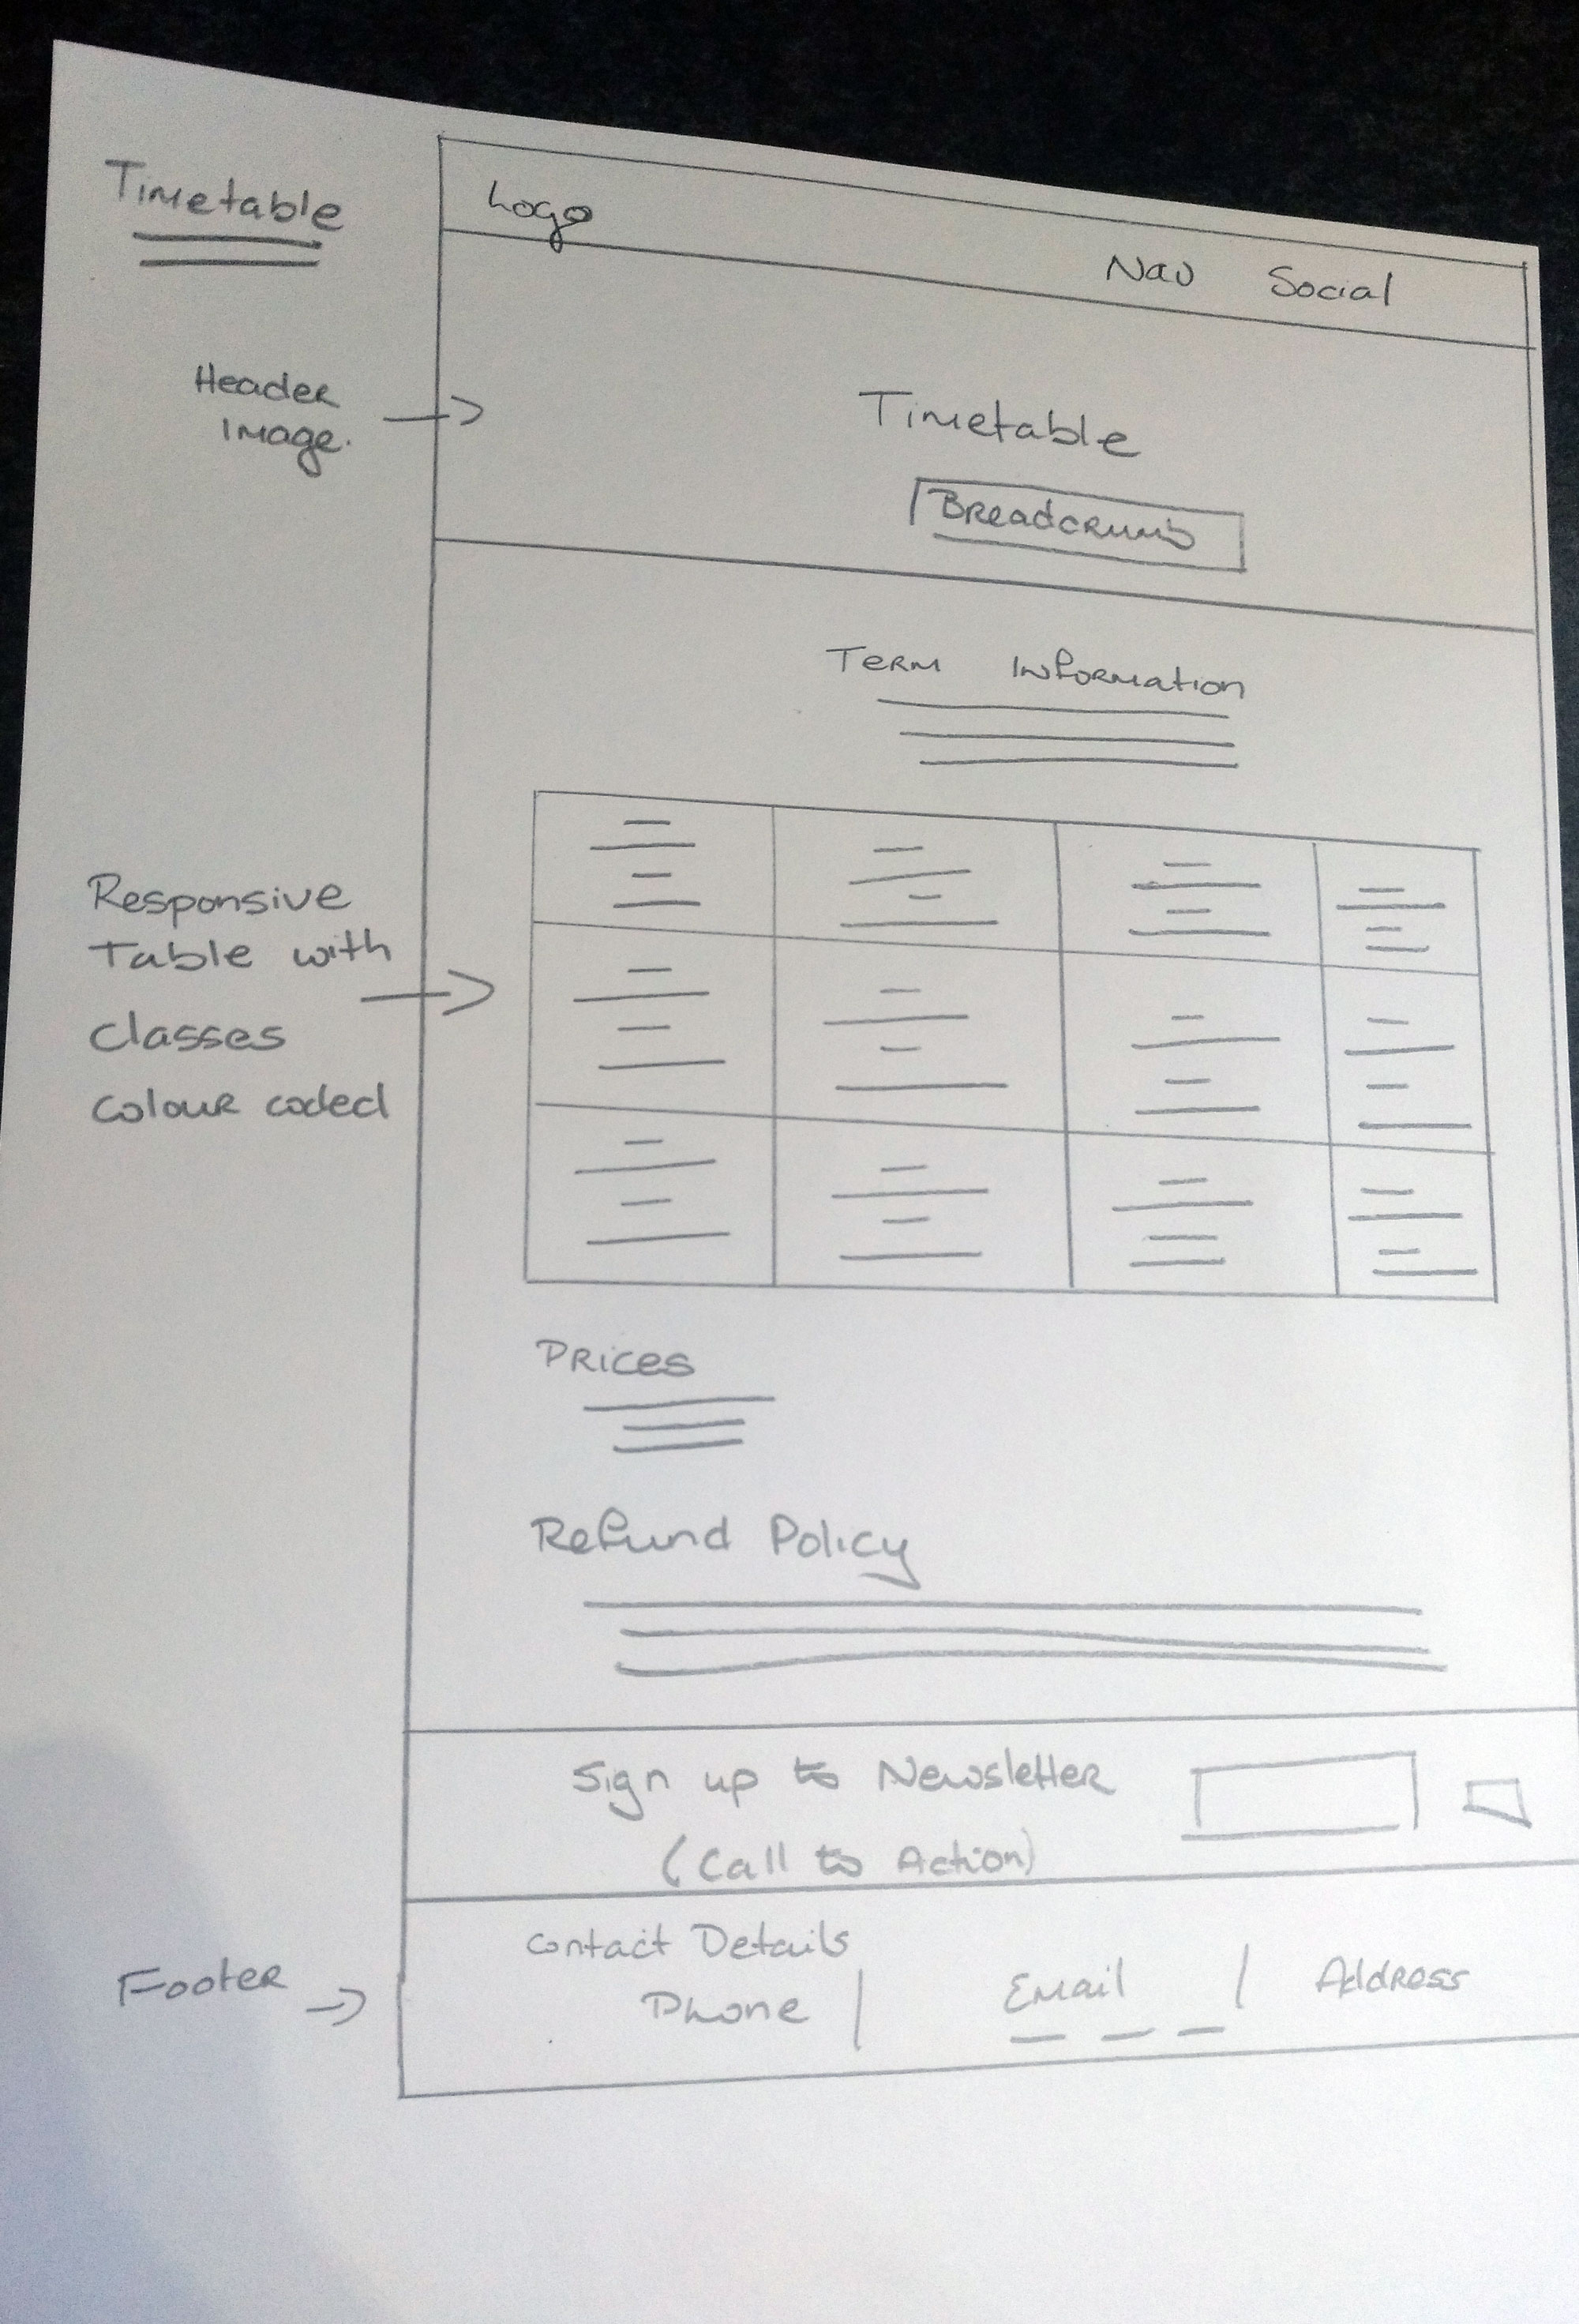 Timetable
Logo
Nav Social
Header
Image.
Timetable
Breadcrumb
Term Information
Responsive
Table with
Classes
Colour coded
Prices
Refund Policy
Sign up to Newsletter
(Call to Action)
Footer
Contact Details
Phone | Email | Address